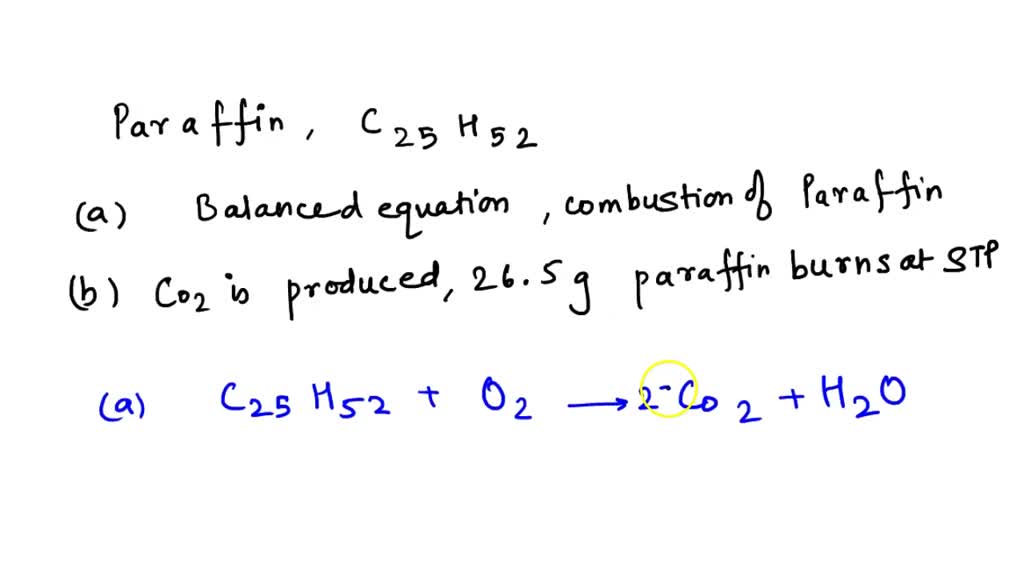 Paraffin, C25H52
(a) Balanced equation, combustion of Paraffin
(b) Co2 is produced, 26.5g paraffin burns at STP
(a) C25H52 + O2 → 2- Co2 + H2O